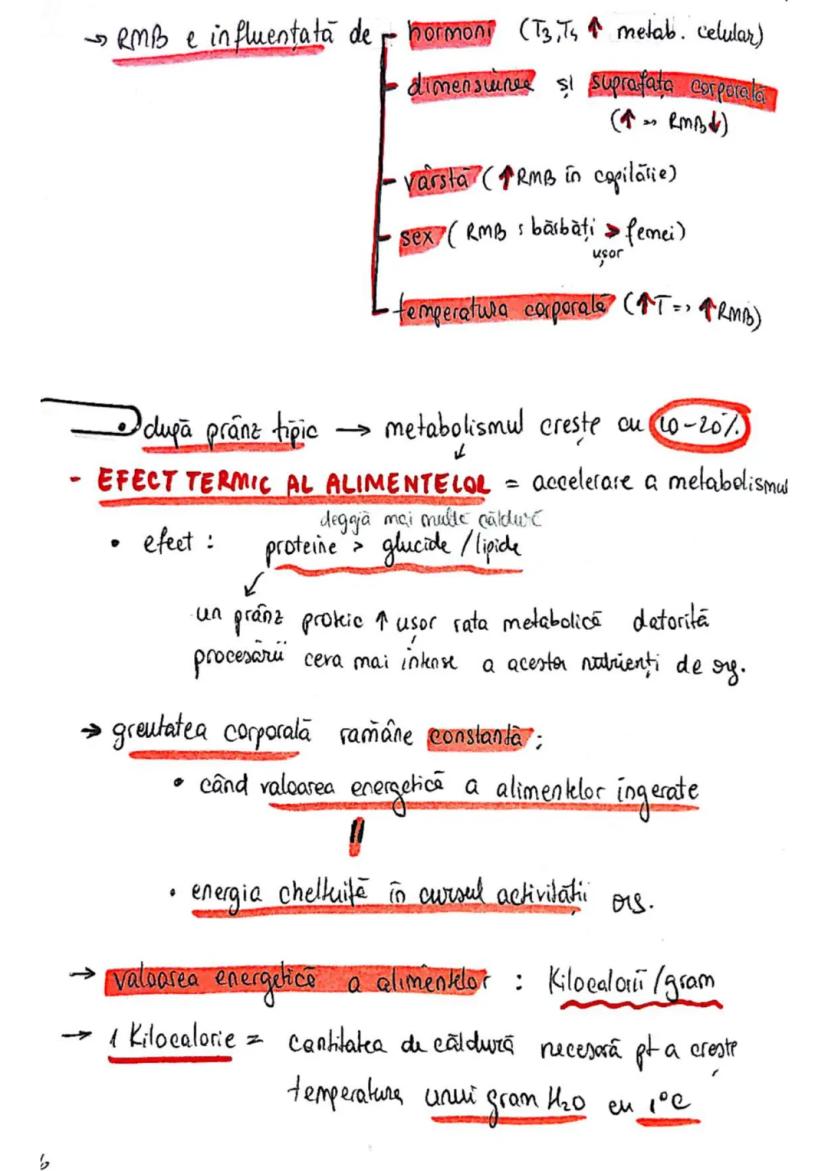 → RMB e influențată de hormoni (T3,T4 ↑ metab. celular)
- dimensiunea și suprafața corporală
(↑ => RMB↓)
- vârstă (↑RMB în copilărie)
- sex (RMB : bărbați > femei)
ușor
- temperatura corporală (↑T => ↑RMB)
după prânz tipic → metabolismul crește cu 10-20%
- EFECT TERMIC AL ALIMENTELOR = accelerare a metabolismul
degajă mai multe căldură
• efect : proteine > glucide / lipide
un prânz proteic ↑ ușor rata metabolică datorită
procesării ceva mai intense a acestor nutrienți de org.
→ greutatea corporală rămâne constantă ;
• când valoarea energetică a alimentelor ingerate
=
• energia cheltuită în cursul activității org.
→ valoarea energetică a alimentelor : Kilocalorii / gram
→ 1 Kilocalorie = cantitatea de căldură necesară pt a crește
temperatura unui gram H2O cu 1°C
6